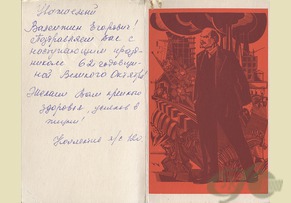 Уважаемый
Валентин Егорович!
Поздравляем Вас с
наступающим празд-
ником 62 годовщи-
ной Великого Октября!
Желаем Вам крепкого
здоровья, успехов в
жизни!
Коллектив